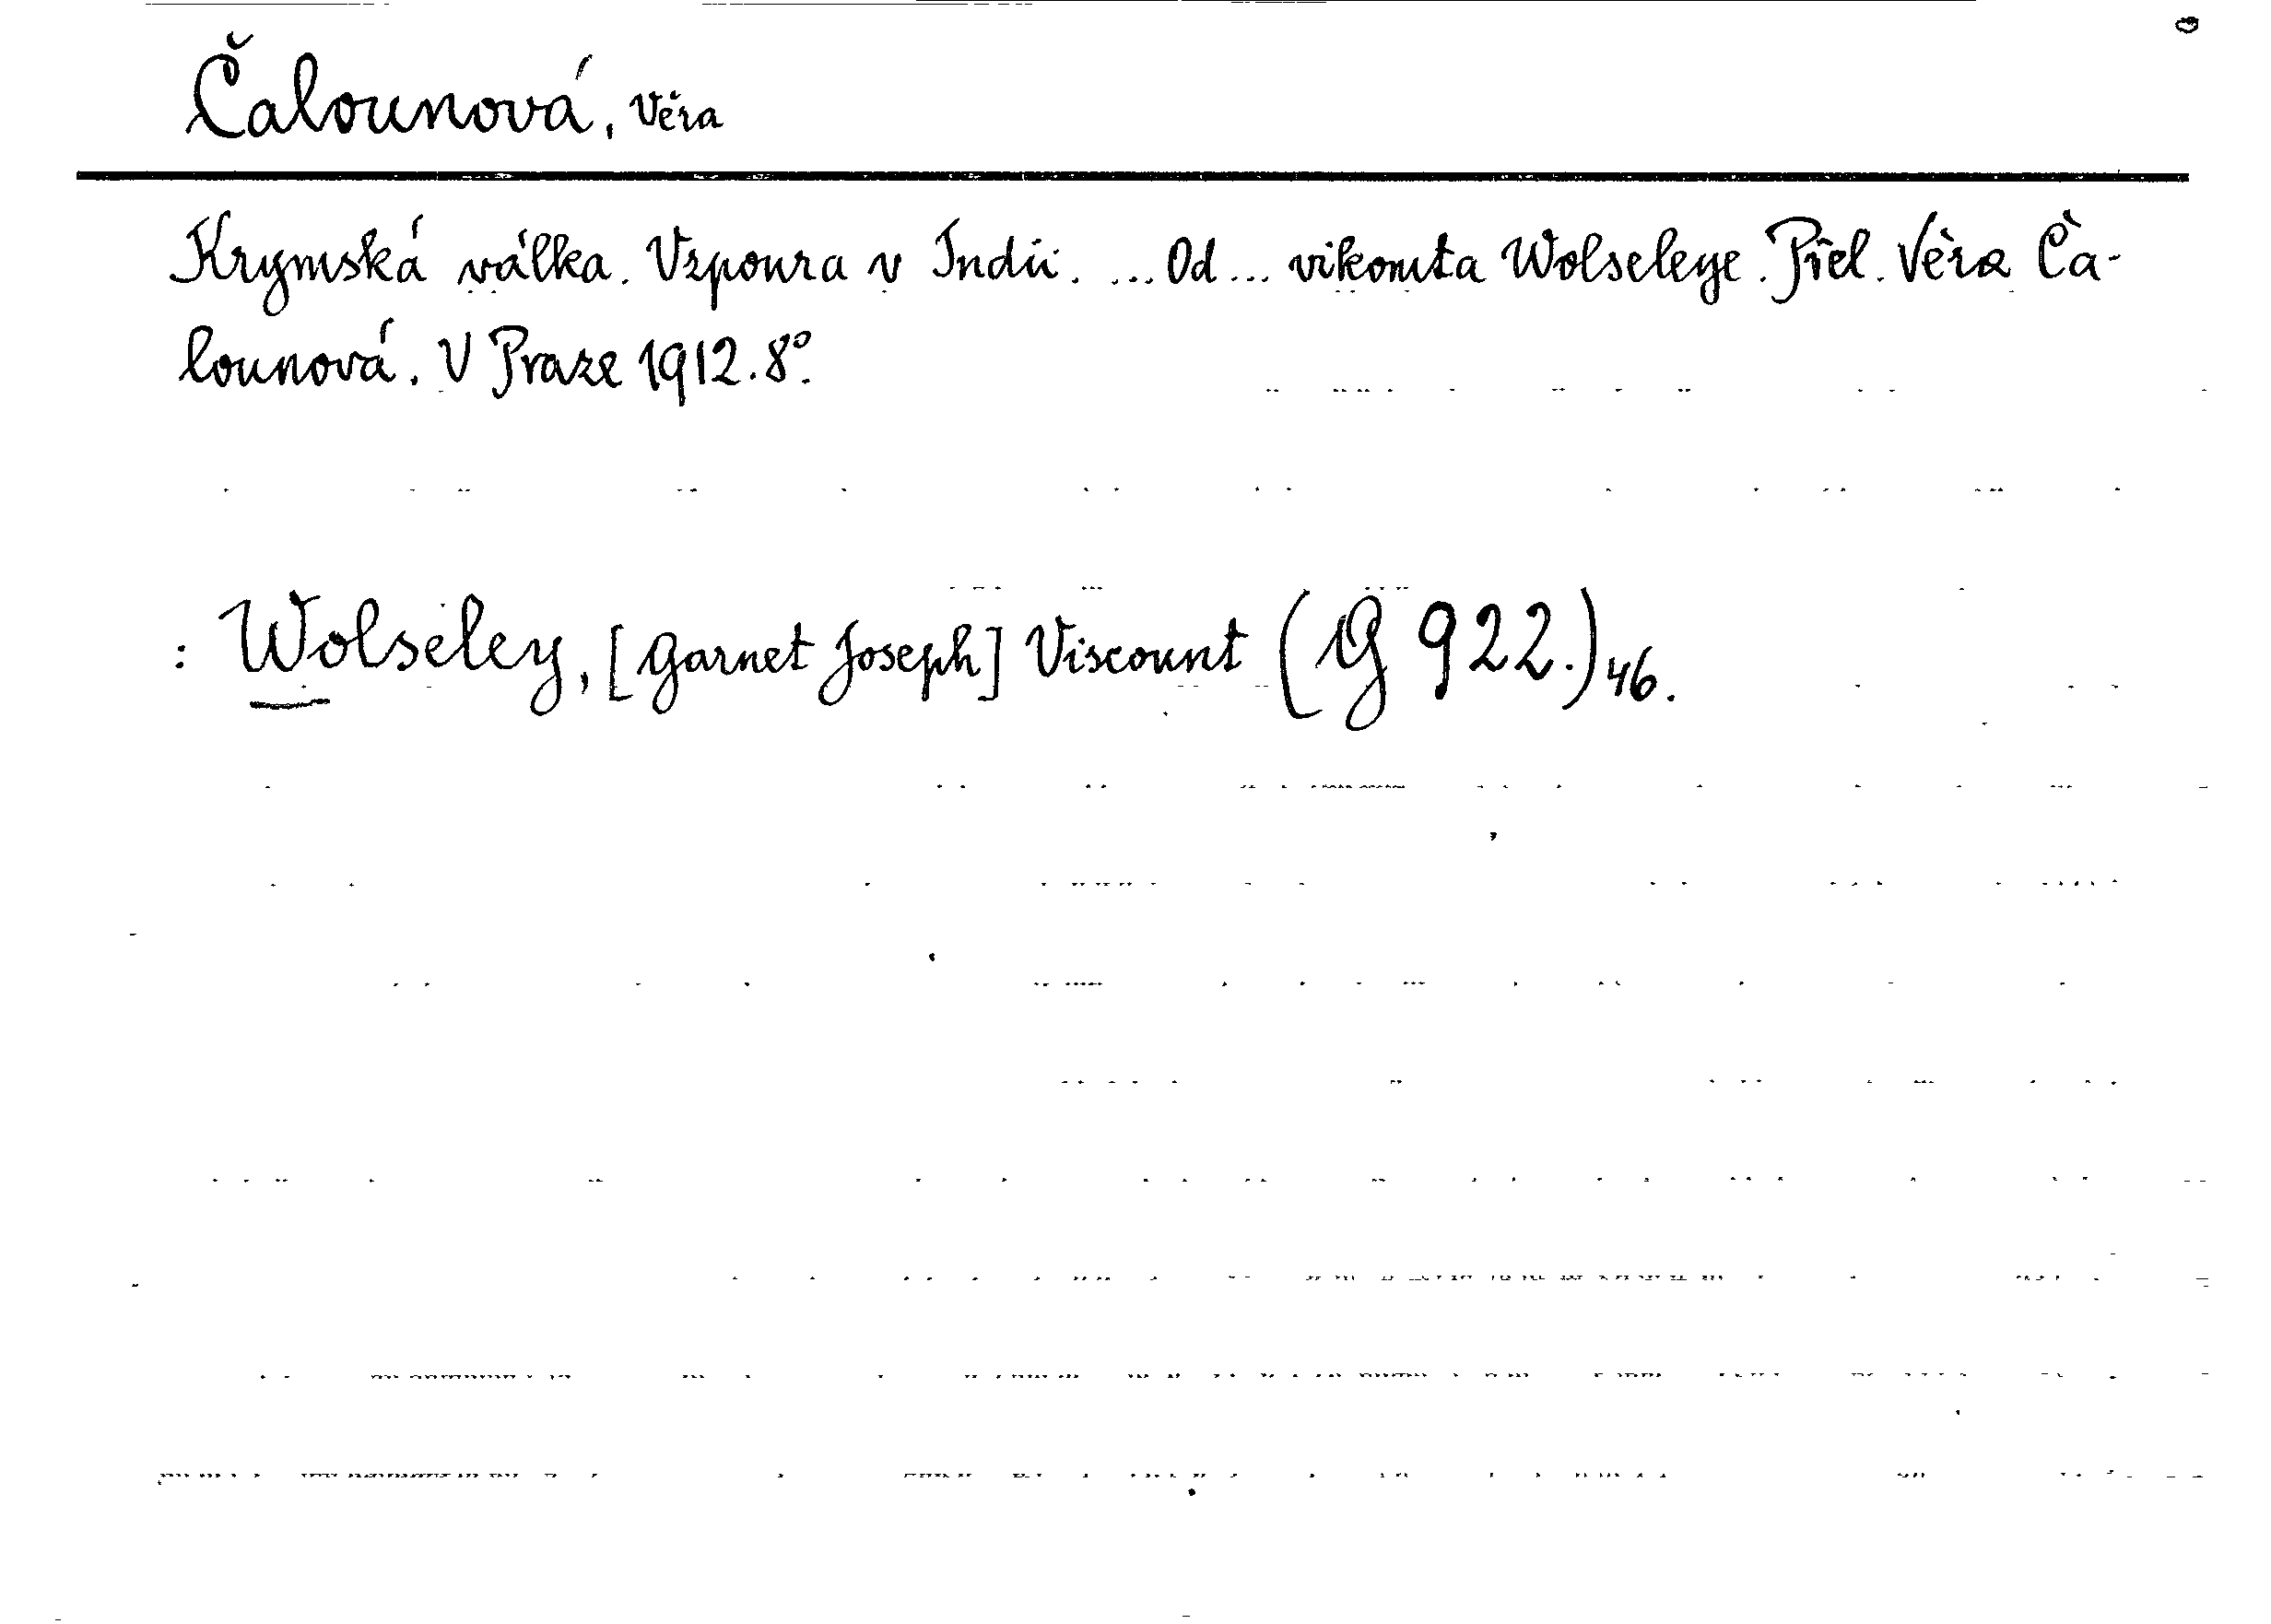 Čalounová, Věra
Krymská válka. Vzpoura v Indii. ... Od ... vikomta Wolseleye. Přel. Věra Ča-
lounová. V Praze 1912. 8°.
: Wolseley, [Garnet Joseph] Viscount (G 922.) 46.